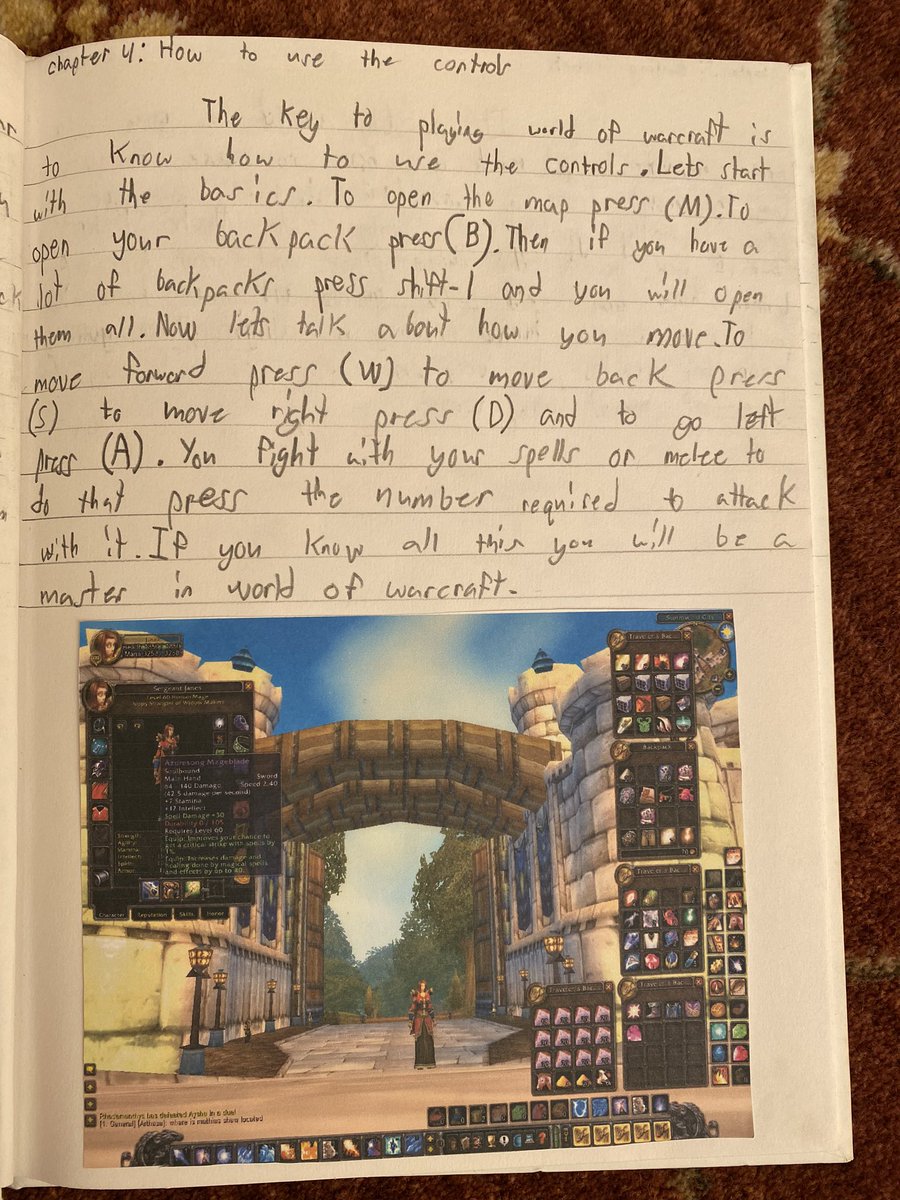 chapter 4: How to use the controls
The key to playing world of warcraft is
to know how to use the controls. Lets start
with the basics. To open the map press (M). To
open your backpack press (B). Then if you have a
lot of backpacks press shift-1 and you will open
them all. Now lets talk about how you move. To
move forward press (W) to move back press
(S) to move right press (D) and to go left
press (A). You fight with your spells or melee to
do that press the number required to attack
with it. If you know all this you will be a
master in world of warcraft.
Stormwind City
Traveler's Bac...
Sergeant Janes
Level 60 Human Mage
Azuresong Mageblade
Soulbound
Main Hand Sword
64 - 140 Damage Speed 2.40
(42.5 damage per second)
+7 Stamina
+12 Intellect
Spell Damage +30
Durability 0 / 105
Requires Level 60
Equip: Improves your chance to
get a critical strike with spells by
1%.
Equip: Increases damage and
healing done by magical spells
and effects by up to 40.
Strength:
Agility:
Stamina:
Intellect:
Spirit:
Armor:
Character Reputation Skills Honor
Backpack
Traveler's Bac...
Traveler's Bac...
Traveler's Bac...
has defeated in a duel
[1. General]